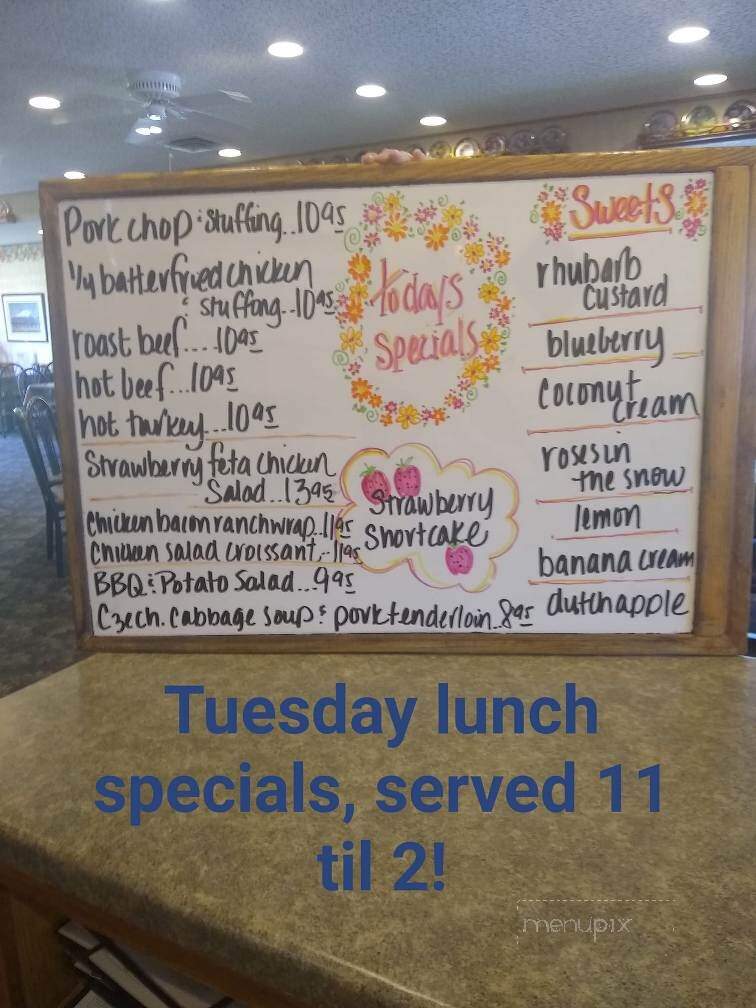 Pork chop & Stuffing..10 95
1/4 batterfried chicken
& stuffong..10 95
roast beef....10 95
hot beef...10 95
hot turkey...10 95
Strawberry feta chicken
Salad..13 95
Chicken bacon ranch wrap..11 95
Chicken salad croissant..11 95
BBQ & Potato Salad...9 95
Czech. Cabbage soup & pork tenderloin..8 95
todays
specials
Strawberry
Shortcake
Sweets
rhubarb
custard
blueberry
coconut
cream
roses in
the snow
lemon
banana cream
dutch apple
Tuesday lunch
specials, served 11
til 2!
menupix